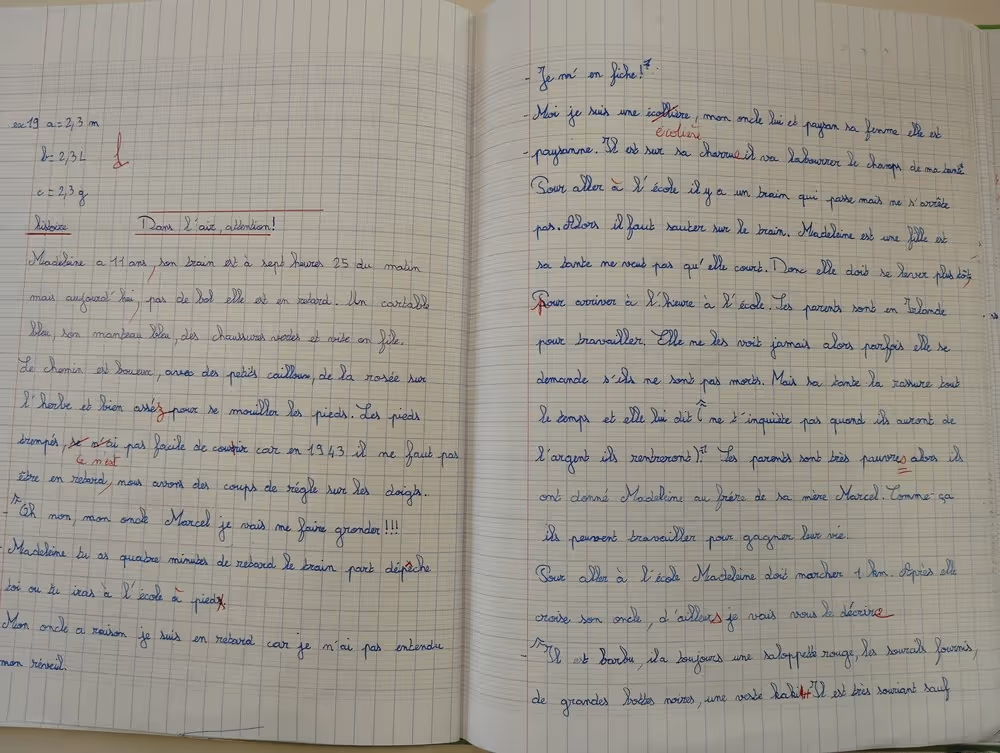 ex 19 a = 2,3 m
b = 2,3 L
c = 2,3 g
histoire Dans l'air, attention!
Madeleine a 11 ans, son train est à sept heures 25 du matin
mais aujourd'hui, pas de bol elle est en retard. Un cartable
bleu, son manteau bleu, des chaussures vertes et vite en file.
Le chemin est boueux, avec des petits cailloux, de la rosée sur
l'herbe et bien assez pour se mouiller les pieds. Les pieds
trempés, pas facile de courir car en 1943 il ne faut pas
ce n'est
être en retard, nous avons des coups de règle sur les doigts.
- "Oh non, mon oncle Marcel je vais me faire gronder!!!
- Madeleine tu as quatre minutes de retard le train part dépêche
toi ou tu iras à l'école à pied.
Mon oncle a raison je suis en retard car je n'ai pas entendu
mon réveil.
- Je m'en fiche!"
- Moi je suis une écollière, mon oncle lui et paysan sa femme elle est
écolière
- paysanne. Il est sur sa charrue il va labourrer le champs de ma tante"
Pour aller à l'école il y a un train qui passe mais ne s'arrête
pas. Alors il faut sauter sur le train. Madeleine est une fille et
sa tante ne veut pas qu'elle court. Donc elle doit se lever plus tôt,
pour arriver à l'heure à l'école. Ses parents sont en Irlande
pour travailler. Elle ne les voit jamais alors parfois elle se
demande s'ils ne sont pas morts. Mais sa tante la rassure tout
le temps et elle lui dit (" ne t'inquiète pas quand ils auront de
l'argent ils rentreront)." Ses parents sont très pauvres alors ils
ont donné Madeleine au frère de sa mère Marcel. Comme ça
ils peuvent travailler pour gagner leur vie.
Pour aller à l'école Madeleine doit marcher 1 km. Après elle
croise son oncle, d'ailleurs je vais vous le décrire
- "Il est barbu, il a toujours une saloppette rouge, les sourcils fournis,
de grandes bottes noires, une veste kaki. Il est très souriant sauf